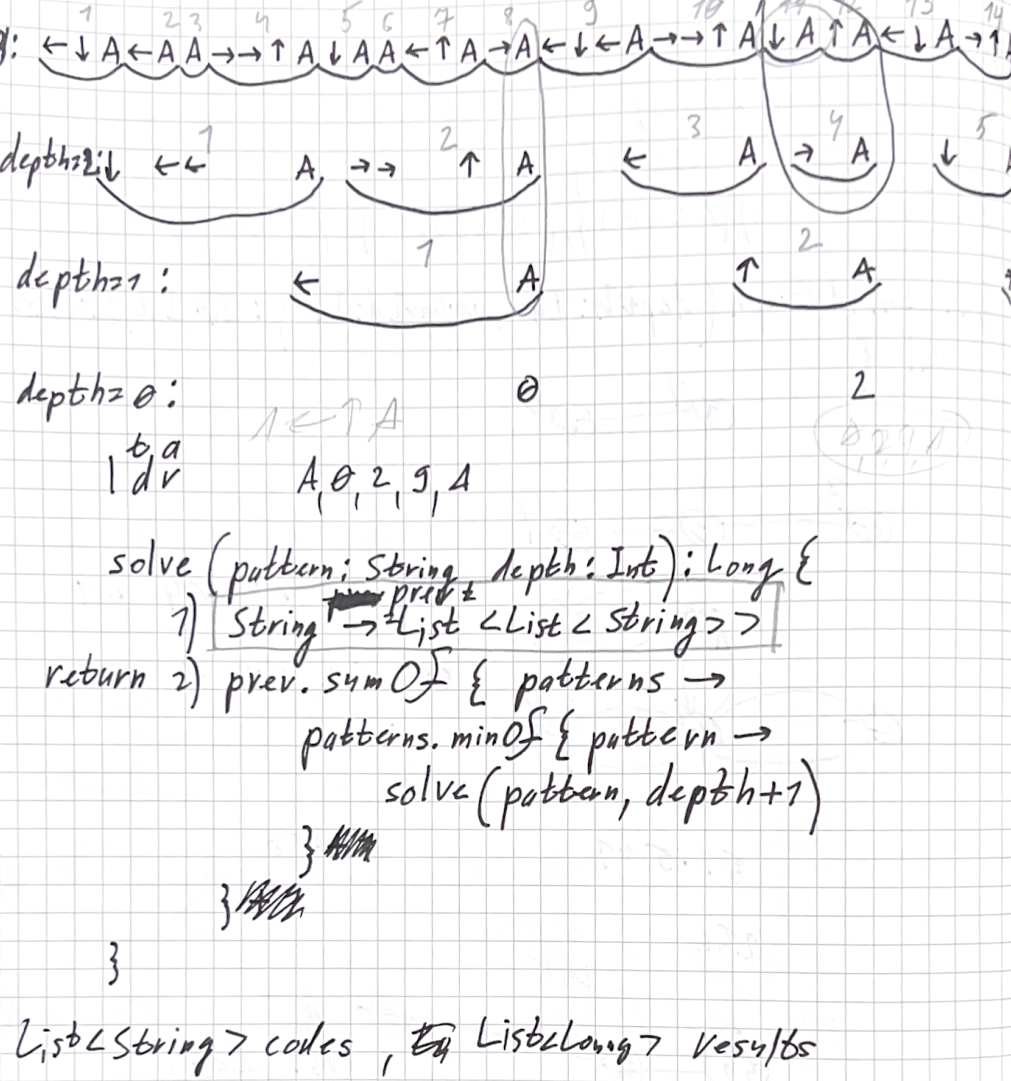 1 2 3 4 5 6 7 8 9 10 11 12 13 14
: ←↓A←AA→→↑A↓AA←↑A→A←↓←A→→↑A↓A↑A←↓A→↑
1 2 3 4 5
depth=2: ↓ ←← A →→ ↑ A ← A → A ↓
1 2
depth=1: ← A ↑ A
depth=0: 0 2
1←↑A
t,a
l d r A,0,2,9,A
solve(pattern: String, depth: Int): Long {
prev
1) String → List <List < String>>
return 2) prev.sumOf { patterns →
patterns.minOf { pattern →
solve(pattern, depth+1)
}
}
}
List<String> codes, List<Long> results